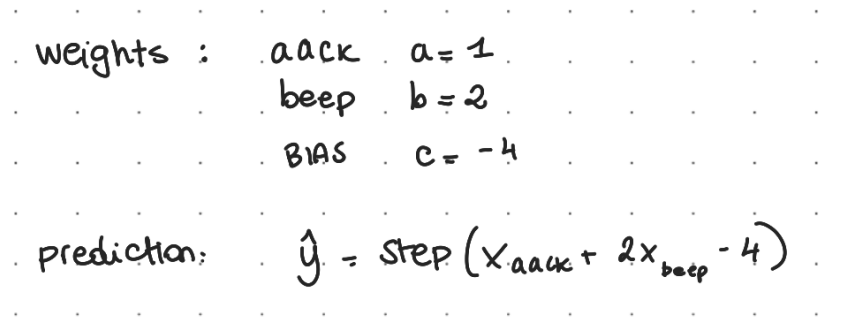 weights : aack a = 1
beep b = 2
BIAS c = -4
prediction: ŷ = step (x_aack + 2x_beep - 4)